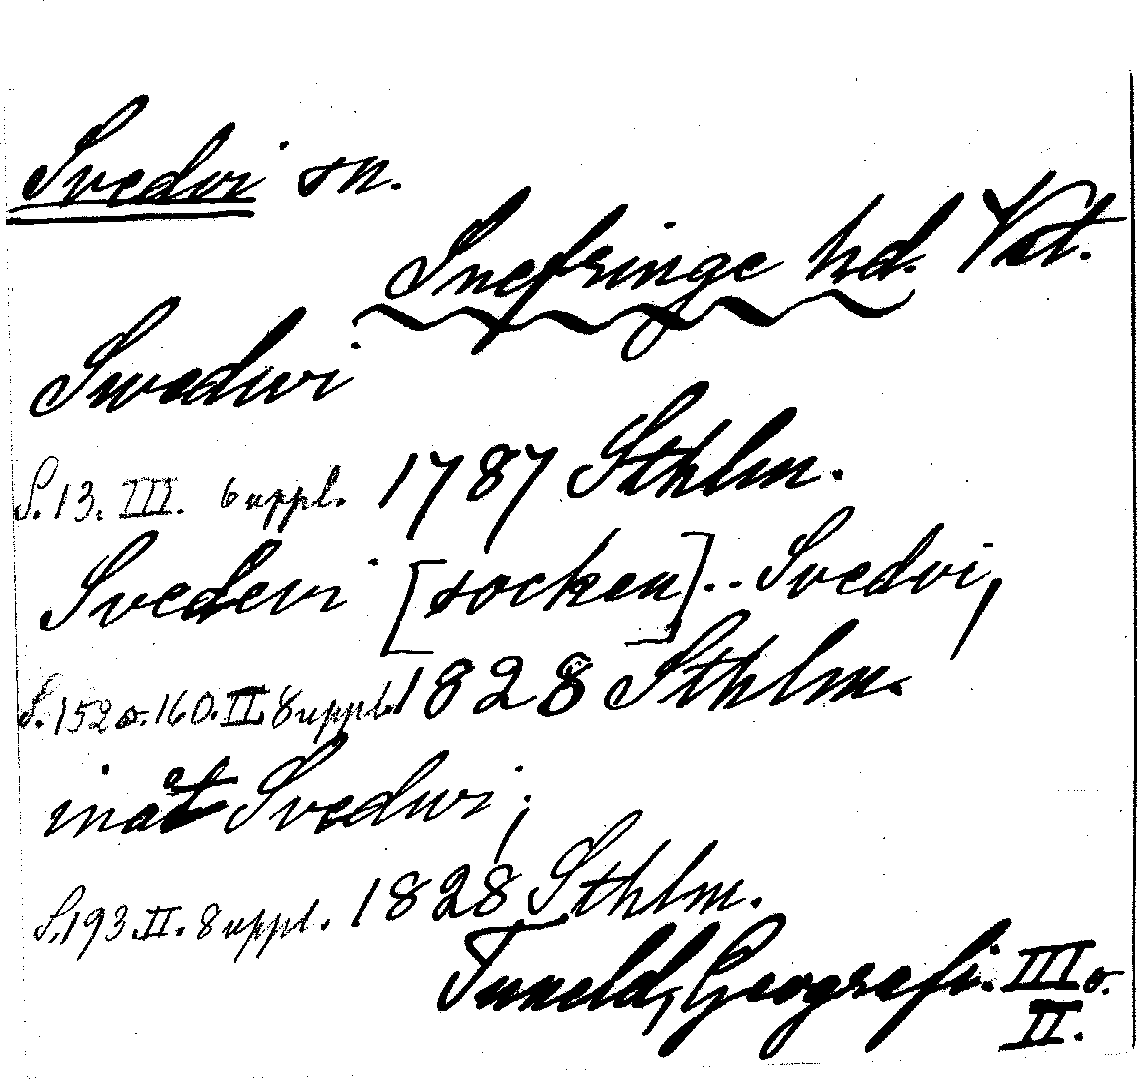 Svedvi sn.
Snefringe hd. Vstl.
Swedwi
S. 13. III. 6 uppl. 1787 Sthlm.
Svedevi [socken]... Svedvi,
S. 152 o. 160. II. 8 uppl. 1828 Sthlm.
inåt Svedwi;
S. 193. II. 8 uppl. 1828 Sthlm.
Tuneld, Geografi. III o.
II.